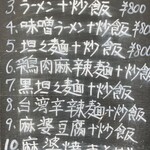 3.ラーメン+炒飯 ¥800
4.味噌ラーメン+炒飯 ¥800
5.担々麺+炒飯 ¥800
6.鶏肉麻辣麺+炒飯
7.黒担々麺+炒飯
8.台湾辛辣麺+炒飯
9.麻婆豆腐+炒飯
10.麻婆焼